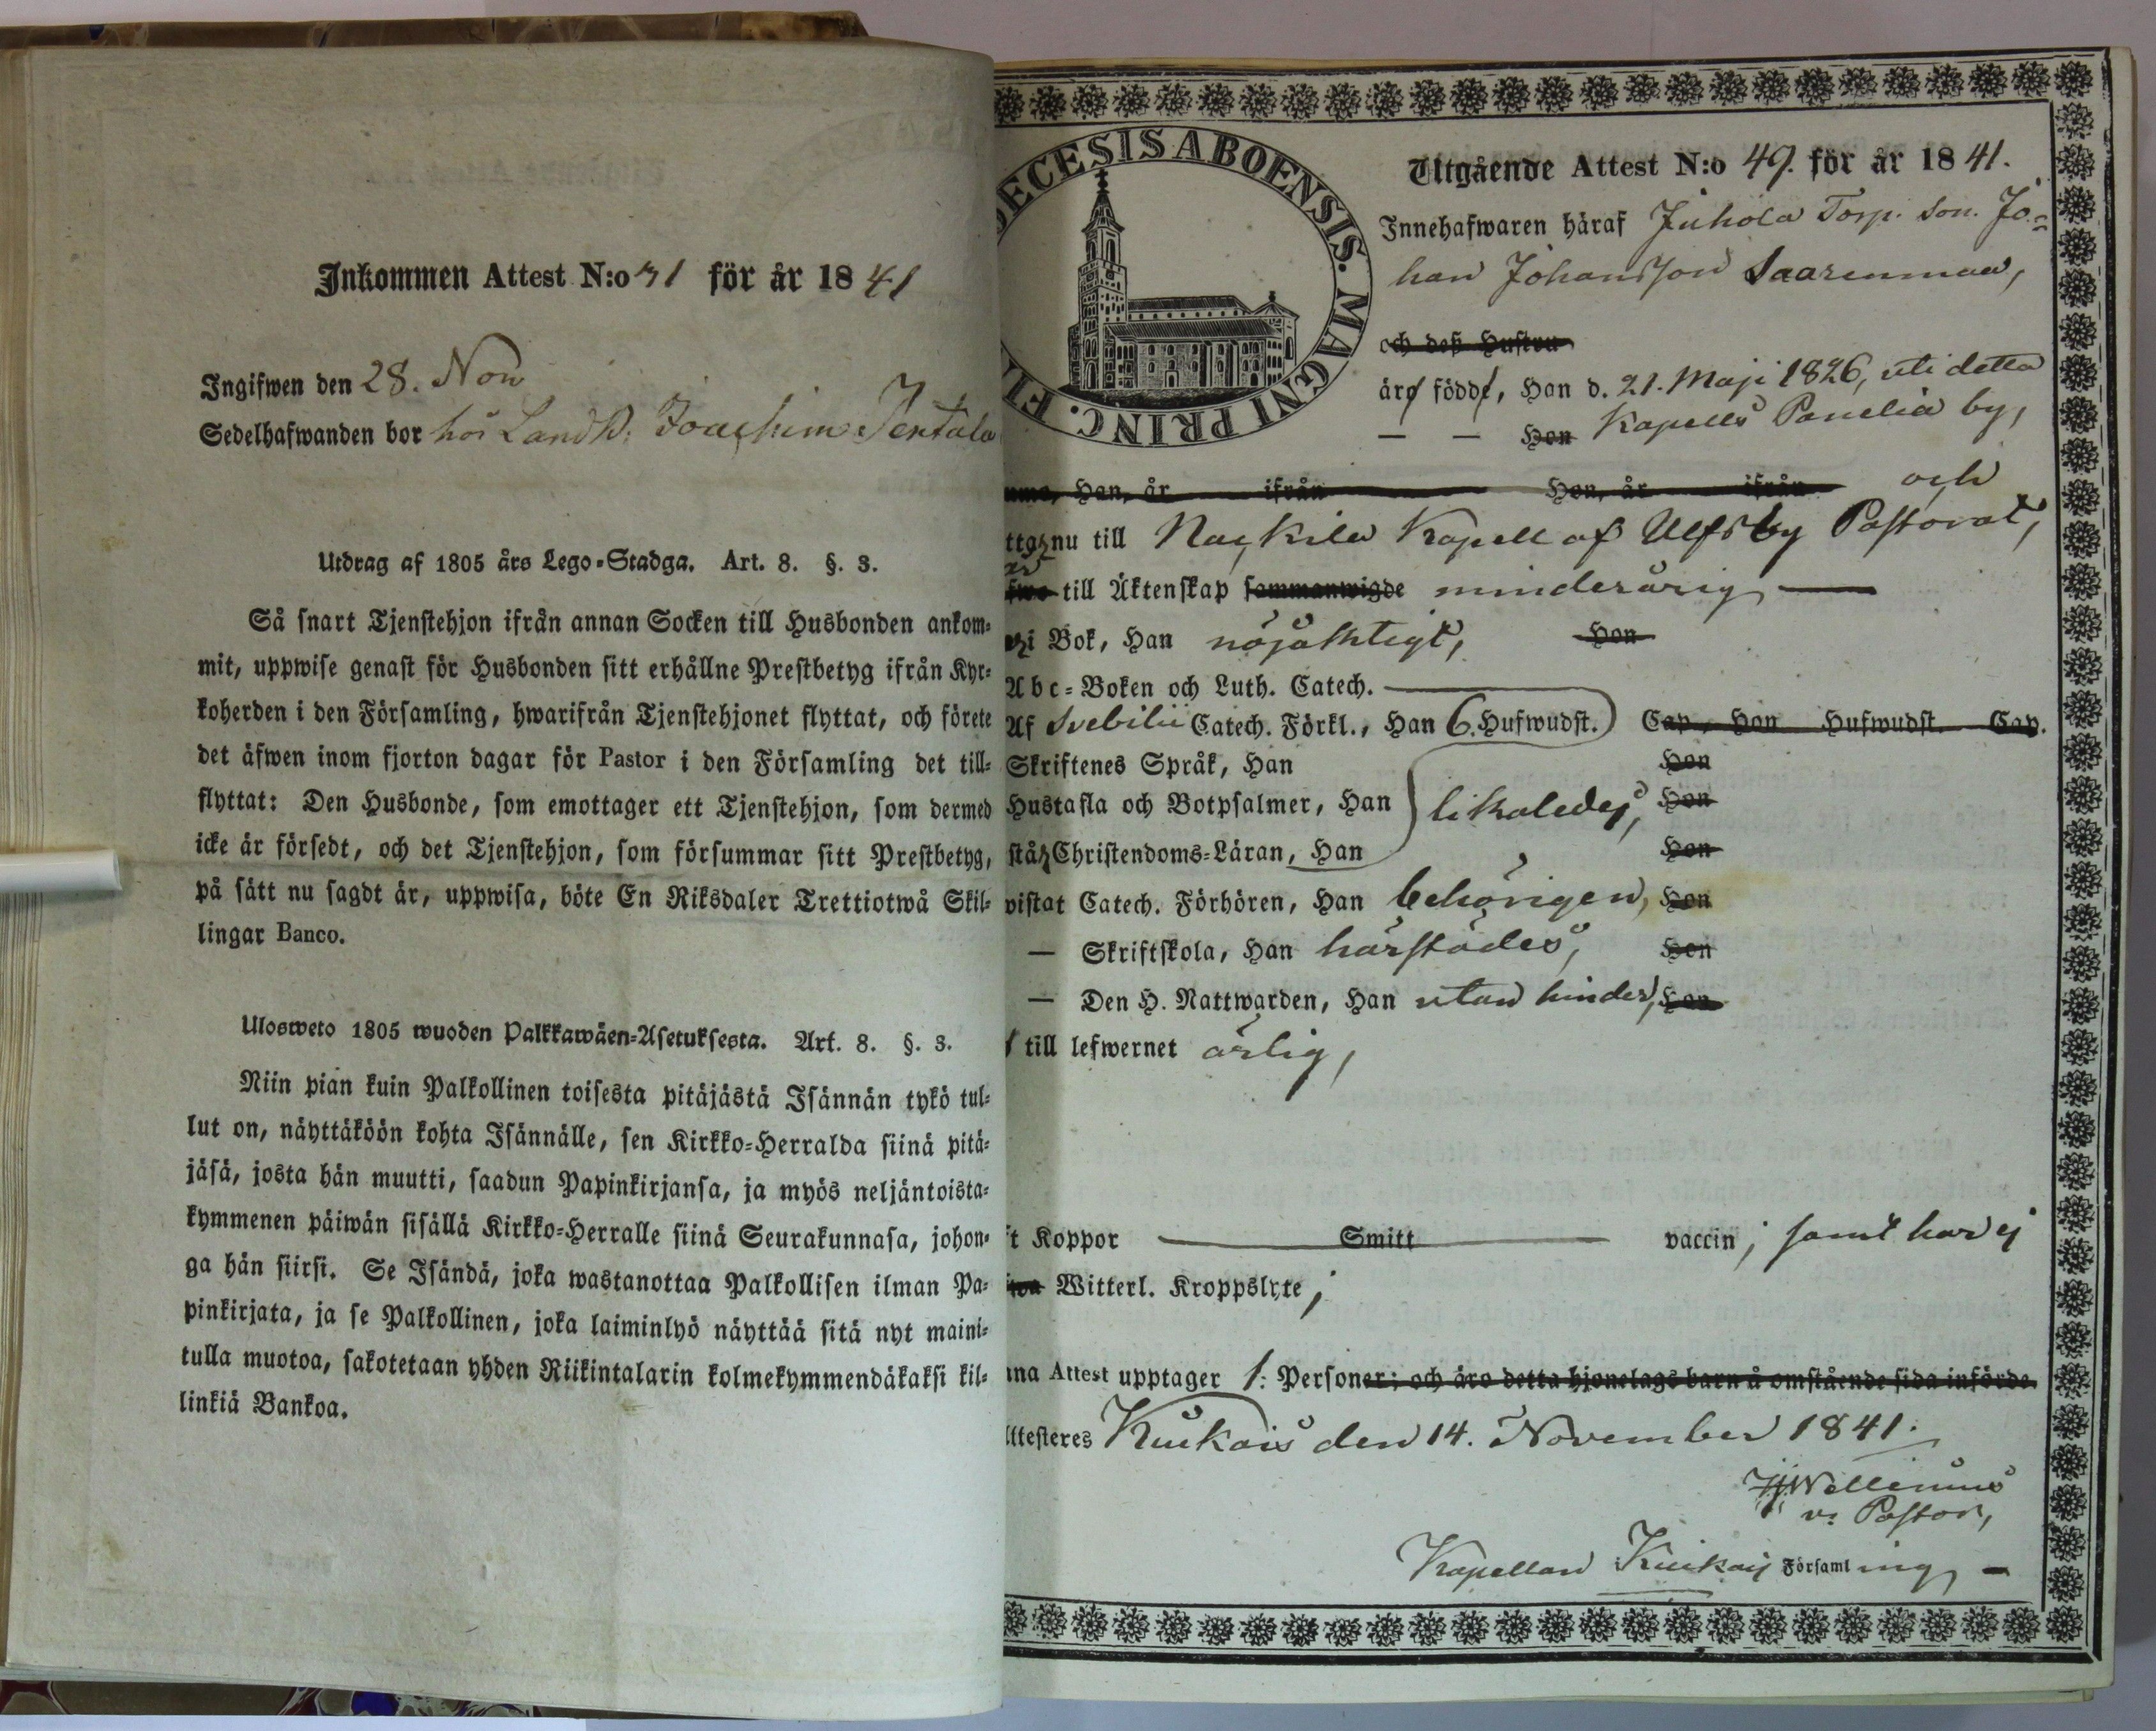 Inkommen Attest N:o 31 för år 1841
Ingifwen den 28. Nov
Sedelhafwanden bor hos Landb. Joachim Tentala
Utdrag af 1805 års Lego-Stadga. Art. 8. §. 3.
Så snart Tjenstehjon ifrån annan Socken till Husbonden ankom-
mit, uppwise genast för Husbonden sitt erhållne Prestbetyg ifrån Kyr-
koherden i den Församling, hwarifrån Tjenstehjonet flyttat, och förete
det äfwen inom fjorton dagar för Pastor i den Församling det till-
flyttat: Den Husbonde, som emottager ett Tjenstehjon, som dermed
icke är försedt, och det Tjenstehjon, som försummar sitt Prestbetyg,
på sätt nu sagdt är, uppwisa, böte En Riksdaler Trettiotwå Skil-
lingar Banco.
Ulosweto 1805 wuoden Palkkawäen-Asetuksesta. Art. 8. §. 3.
Niin pian kuin Palkollinen toisesta pitäjästä Isännän tykö tul-
lut on, näyttäköön kohta Isännälle, sen Kirkko-Herralda siinä pitä-
jäsä, josta hän muutti, saadun Papinkirjansa, ja myös neljäntoista-
kymmenen päiwän sisällä Kirkko-Herralle siinä Seurakunnasa, johon-
ga hän siirsi. Se Isändä, joka wastanottaa Palkollisen ilman Pa-
pinkirjata, ja se Palkollinen, joka laiminlyö näyttää sitä nyt maini-
tulla muotoa, sakotetaan yhden Riikintalarin kolmekymmendäkaksi kil-
linkiä Bankoa.
ECESIS ABOENSIS. MAGNI PRINC. FI
Utgående Attest N:o 49. för år 1841.
Innehafwaren häraf Juhola Torp. Son. Jo-
han Johansson Saarenmaa,
och deß Hustru
äro födde, Han d. 21. Maji 1826, uti detta
— — Hon Kapells Panelia by,
Han, år ifrån Hon, år ifrån och
nu till Nackila Kapell af Ulfsby Pastorat,
till Äktenskap sammanwigde minderårig
i Bok, Han nöjaktigt, Hon
Abc-Boken och Luth. Catech.
Af Svebilii Catech. Förkl., Han 6. Hufwudst. Cap, Hon Hufwudst. Cap.
Skriftenes Språk, Han Hon
Hustafla och Botpsalmer, Han likaledes, Hon
Christendoms-Läran, Han Hon
vistat Catech. Förhören, Han behörigen, Hon
— Skriftskola, Han härstädes, Hon
— Den H. Nattwarden, Han utan hinder, Hon
till lefwernet ärlig,
Koppor Smitt vaccin; samt har ej
Witterl. Kroppslyte;
na Attest upptager 1. Personer; och äro detta hjonelags barn å omstående sida införde.
ttesteres Kiukais den 14. November 1841.
Wellenius
v. Pastor,
Kapellan Kiukais Församling